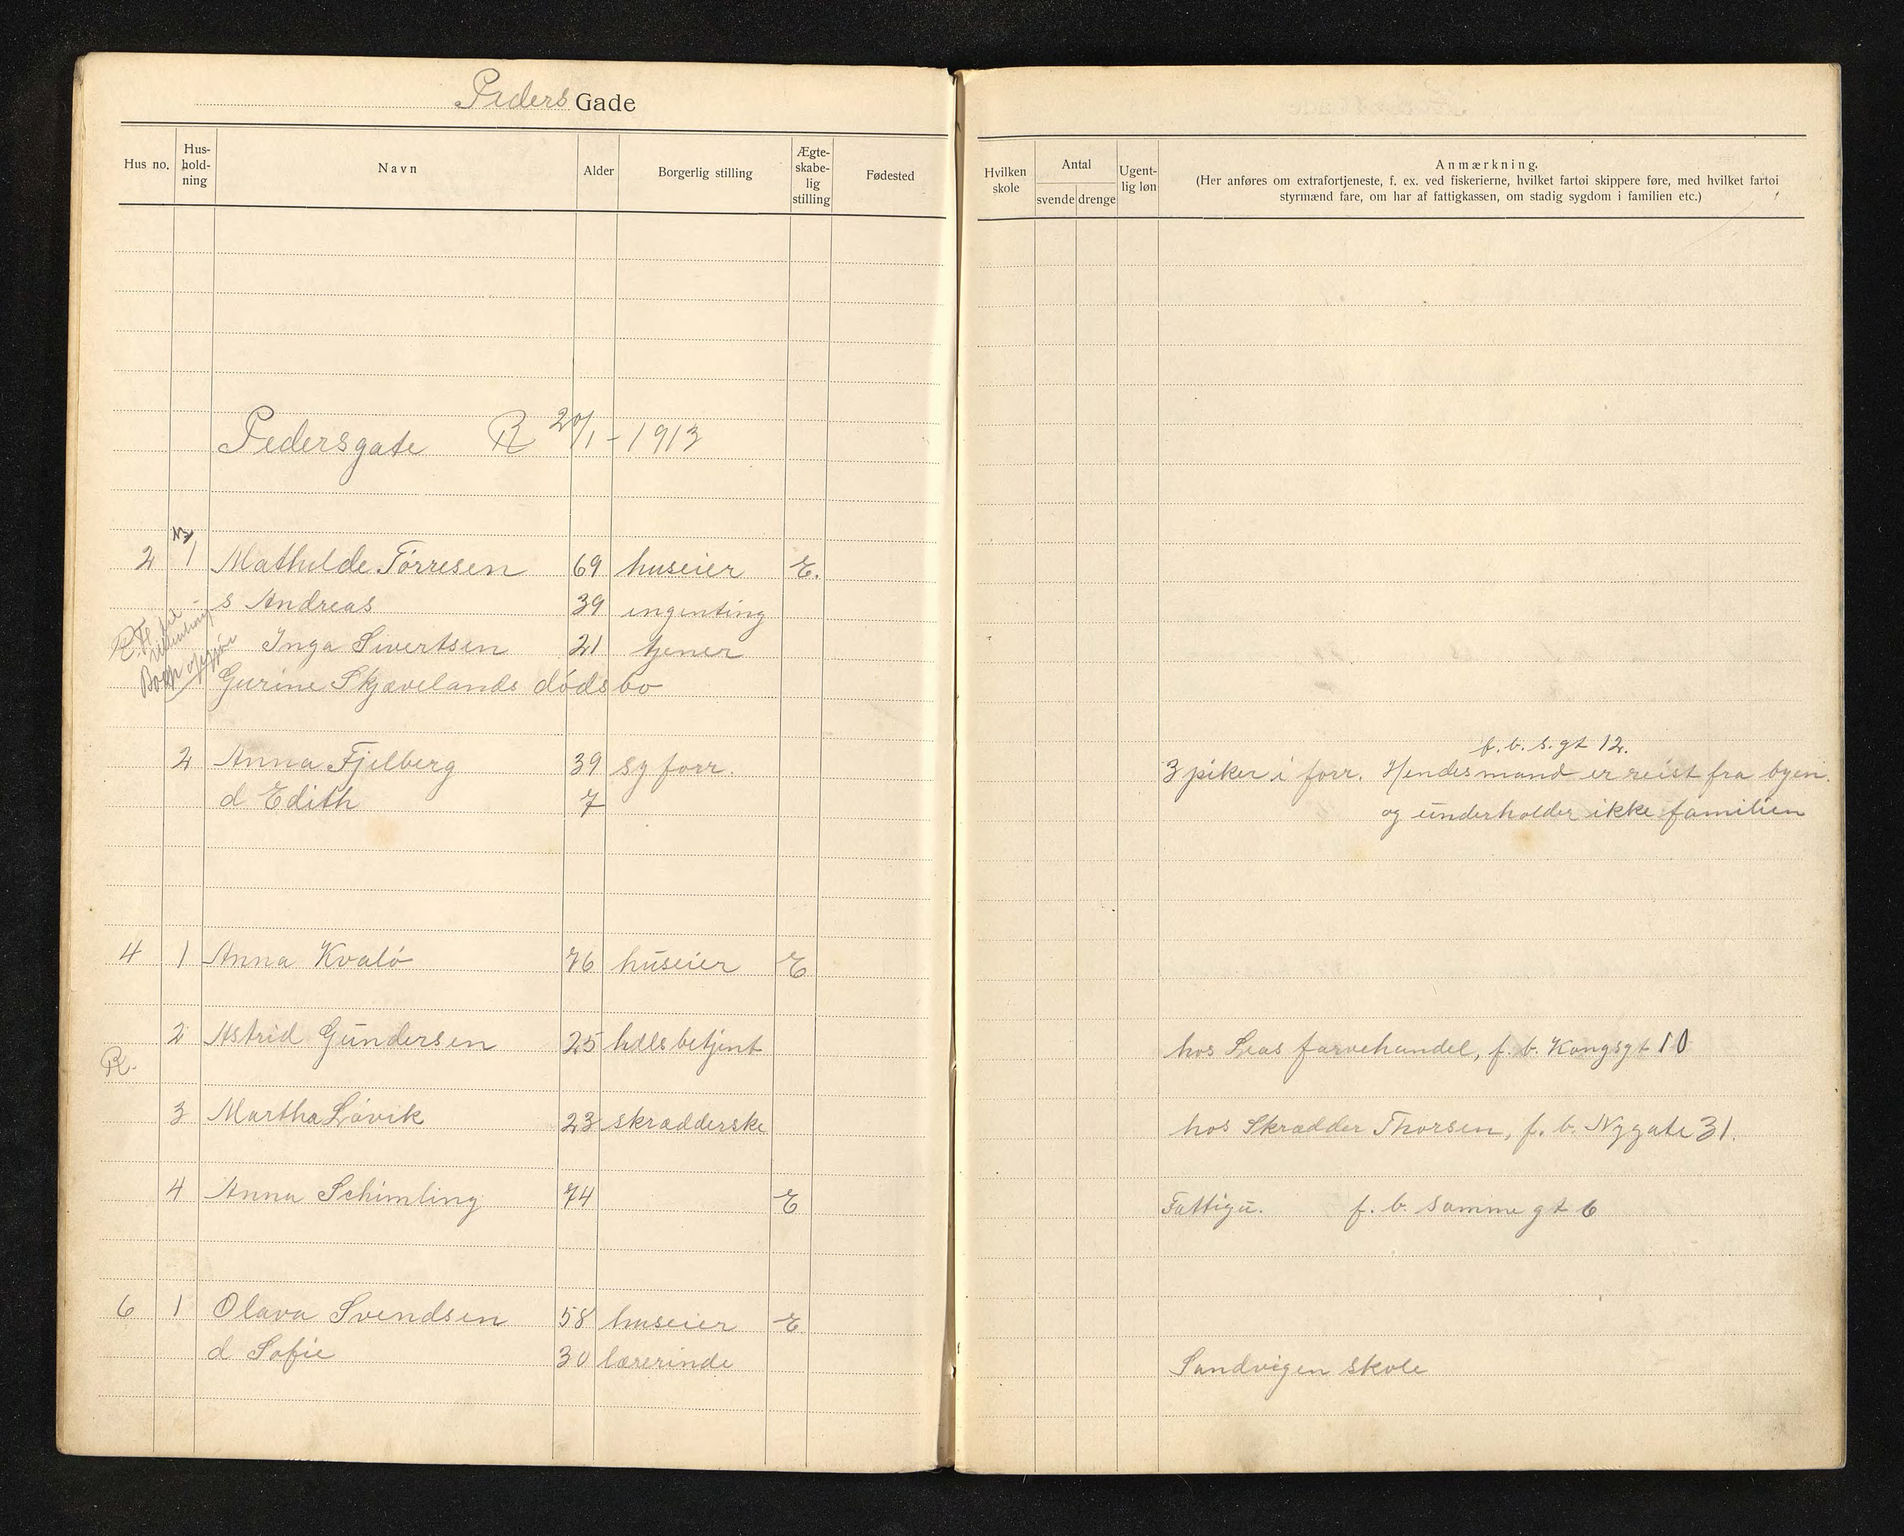 Peders Gade
Hus no. Hus-hold-ning Navn Alder Borgerlig stilling Ægte-skabe-lig stilling Fødested
Hvilken skole Antal svende drenge Ugent-lig løn Anmærkning.
(Her anføres om extrafortjeneste, f. ex. ved fiskerierne, hvilket fartøi skippere føre, med hvilket fartøi
styrmænd fare, om har af fattigkassen, om stadig sygdom i familien etc.)
Pedersgate R 20/1 - 1913
2 1 Mathilde Tørresen 69 huseier E.
s Andreas 39 ingenting
Inga Sivertsen 21 tjener
Gurine Skjævelands dødsbo
f. b. s. gt 12.
2 Anna Fjelberg 39 sy forr. 3 piker i forr. Hendes mand er reist fra byen.
d Edith 7 og underholder ikke familien
4 1 Anna Kvalø 76 huseier E
2 Astrid Gundersen 25 hdlsbetjent hos Leas farvehandel, f. b. Kongsgt 10
R.
3 Martha Løvik 23 skrædderske hos Skrædder Thorsen, f. b. Nygate 31.
4 Anna Schimling 74 E Fattigu. f. b. samme gt 6
6 1 Olava Svendsen 58 huseier E
d Sofie 30 lærerinde Sandvigen skole